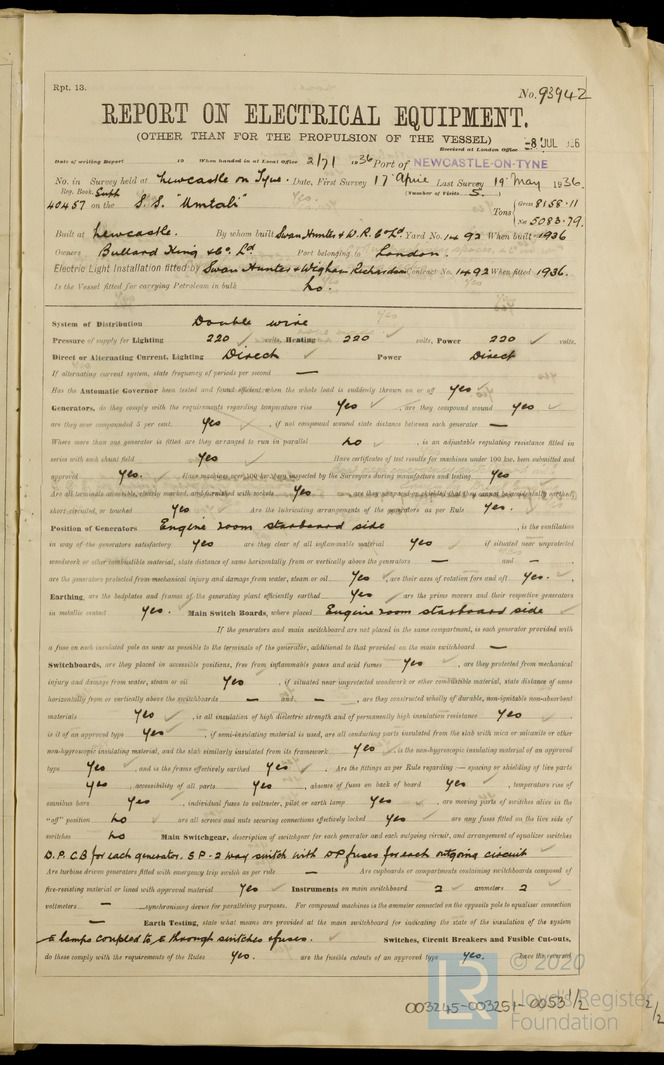 Rpt. 13.
No. 93942
REPORT ON ELECTRICAL EQUIPMENT.
(OTHER THAN FOR THE PROPULSION OF THE VESSEL)
Received at London Office -8 JUL
Date of writing Report 19 When handed in at Local Office 2/7/ 1936 Port of NEWCASTLE-ON-TYNE
No. in Survey held at Newcastle on Tyne. Date, First Survey 17 April Last Survey 19 May 1936.
Reg. Book. Suph (Number of Visits 5.)
40457 on the S.S. "Umtali" Tons { Gross 8158.11
Net 5083.79.
Built at Newcastle. By whom built Swan Hunter & W.R. & Co Ld Yard No. 1492 When built 1936
Owners Bullard King & Co. Ld Port belonging to London.
Electric Light Installation fitted by Swan Hunter & Wigham Richardson Contract No. 1492 When fitted 1936.
Is the Vessel fitted for carrying Petroleum in bulk No.
System of Distribution Double wire
Pressure of supply for Lighting 220 volts, Heating 220 volts, Power 220 volts.
Direct or Alternating Current, Lighting Direct Power Direct
If alternating current system, state frequency of periods per second —
Has the Automatic Governor been tested and found efficient when the whole load is suddenly thrown on or off Yes
Generators, do they comply with the requirements regarding temperature rise Yes, are they compound wound Yes
are they over compounded 5 per cent. Yes, if not compound wound state distance between each generator —
Where more than one generator is fitted are they arranged to run in parallel No, is an adjustable regulating resistance fitted in
series with each shunt field Yes Have certificates of test results for machines under 100 kw. been submitted and
approved Yes. Have machines over 100 kw. been inspected by the Surveyors during manufacture and testing Yes
Are all terminals accessible, clearly marked, and furnished with sockets Yes are they so spaced or shielded that they cannot be accidentally earthed,
short circuited, or touched Yes Are the lubricating arrangements of the generators as per Rule Yes.
Position of Generators Engine room starboard side, is the ventilation
in way of the generators satisfactory Yes are they clear of all inflammable material Yes if situated near unprotected
woodwork or other combustible material, state distance of same horizontally from or vertically above the generators — and —
are the generators protected from mechanical injury and damage from water, steam or oil Yes, are their axes of rotation fore and aft Yes.
Earthing, are the bedplates and frames of the generating plant efficiently earthed Yes are the prime movers and their respective generators
in metallic contact Yes. Main Switch Boards, where placed Engine room starboard side
If the generators and main switchboard are not placed in the same compartment, is each generator provided with
a fuse on each insulated pole as near as possible to the terminals of the generator, additional to that provided on the main switchboard —
Switchboards, are they placed in accessible positions, free from inflammable gases and acid fumes Yes, are they protected from mechanical
injury and damage from water, steam or oil Yes, if situated near unprotected woodwork or other combustible material, state distance of same
horizontally from or vertically above the switchboards — and —, are they constructed wholly of durable, non-ignitable non-absorbent
materials Yes, is all insulation of high dielectric strength and of permanently high insulation resistance Yes
is it of an approved type Yes, if semi-insulating material is used, are all conducting parts insulated from the slab with mica or micanite or other
non-hygroscopic insulating material, and the slab similarly insulated from its framework Yes, is the non-hygroscopic insulating material of an approved
type Yes, and is the frame effectively earthed Yes. Are the fittings as per Rule regarding:— spacing or shielding of live parts
Yes, accessibility of all parts Yes, absence of fuses on back of board Yes, temperature rise of
omnibus bars Yes, individual fuses to voltmeter, pilot or earth lamp Yes, are moving parts of switches alive in the
"off" position No are all screws and nuts securing connections effectively locked Yes are any fuses fitted on the live side of
switches No Main Switchgear, description of switchgear for each generator and each outgoing circuit, and arrangement of equalizer switches
D.P. C.B for each generator. S P - 2 way switch with DP fuses for each outgoing circuit
Are turbine driven generators fitted with emergency trip switch as per rule — Are cupboards or compartments containing switchboards composed of
fire-resisting material or lined with approved material Yes Instruments on main switchboard 2 ammeters 2
voltmeters — synchronising device for paralleling purposes. For compound machines is the ammeter connected on the opposite pole to equaliser connection
— Earth Testing, state what means are provided at the main switchboard for indicating the state of the insulation of the system
E lamps coupled to E through switches & fuses. Switches, Circuit Breakers and Fusible Cut-outs,
do these comply with the requirements of the Rules Yes. are the fusible cutouts of an approved type Yes. have the reversed
© 2020
Lloyd's Register
Foundation
003245-003251-0053 1/2